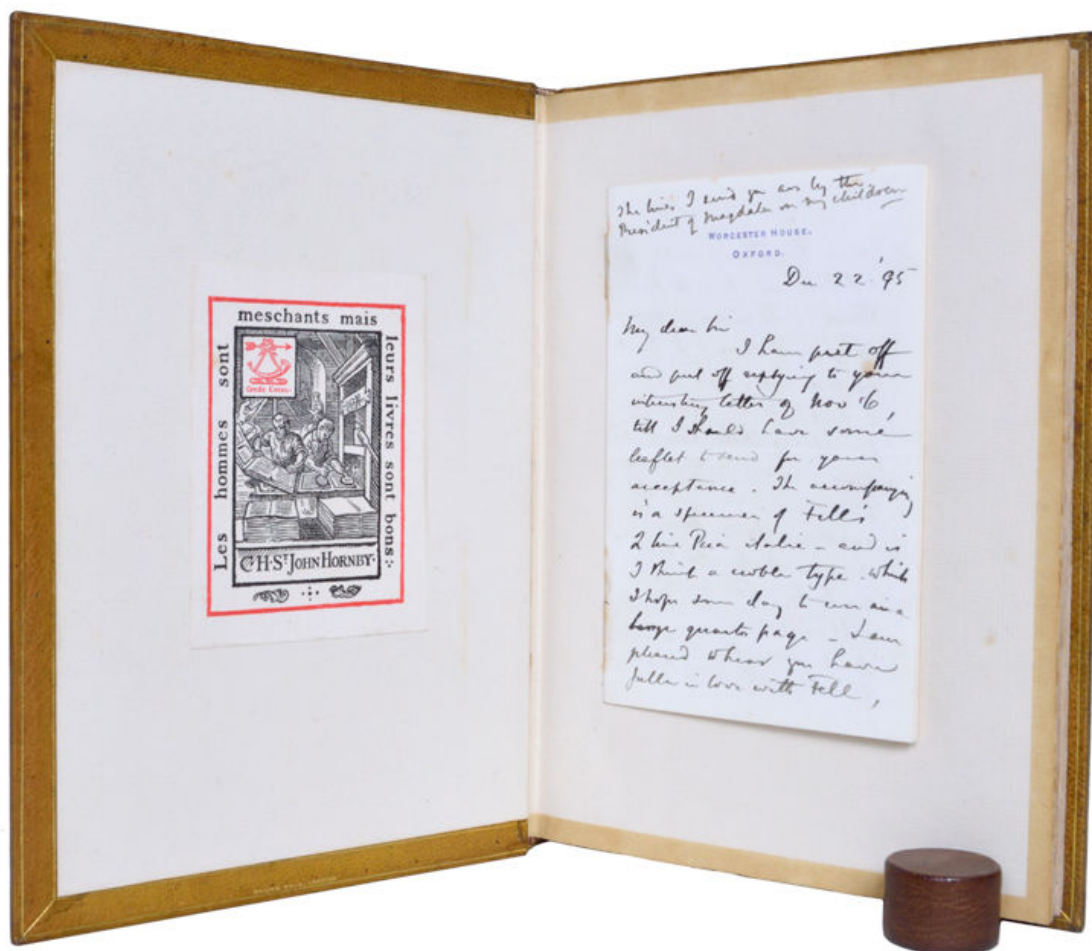 Les hommes sont
meschants mais
leurs livres sont bons
C·H·ST JOHN HORNBY·
The lines I send you are by the
President of Magdalen on my children
WORCESTER HOUSE.
OXFORD.
Dec 22 '95
My dear Sir
I have put off
and put off replying to your
interesting letter of Nov 6,
till I should have some
leaflet to send for your
acceptance. The accompanying
is a specimen of Fell's
2 line Pica Italic - and is
I think a noble type. which
I hope some day to use in a
large quarto page - I am
pleased to hear you have
fallen in love with Fell,